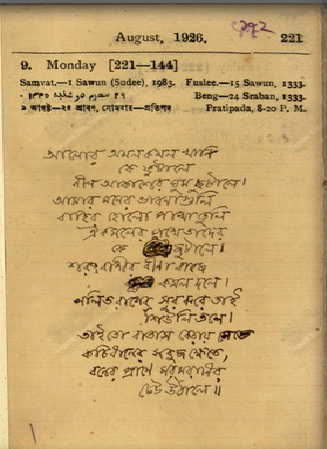 August, 1926.
221
9. Monday [221—144]
Samvat.—1 Sawun (Sudee), 1983. Fuslee.—15 Sawun, 1333.
Beng—24 Sraban, 1333.
৯ আগষ্ট—২৪ শ্রাবণ, সোমবার—প্রতিপদ Pratipada, 8-20 P. M.
আলোর অমল কমল খানি
কে ফুটালে
নীল আকাশের ঘুম ছুটালে।
আমার মনের ভাবনাগুলি
বাহির হোলো পাখা তুলি
ঐ কমলের পথে তাদের
কে জুটালে।
শরৎ বাণীর বীণা বাজে
কমল দলে।
ললিত রাগের সুর ঝরে তাই
শিউলি তলে।
তাই তো বাতাস বেড়ায় মেতে
কচি ধানের সবুজ ক্ষেতে,
বনের প্রাণে মরমরানির
ঢেউ উঠালে॥